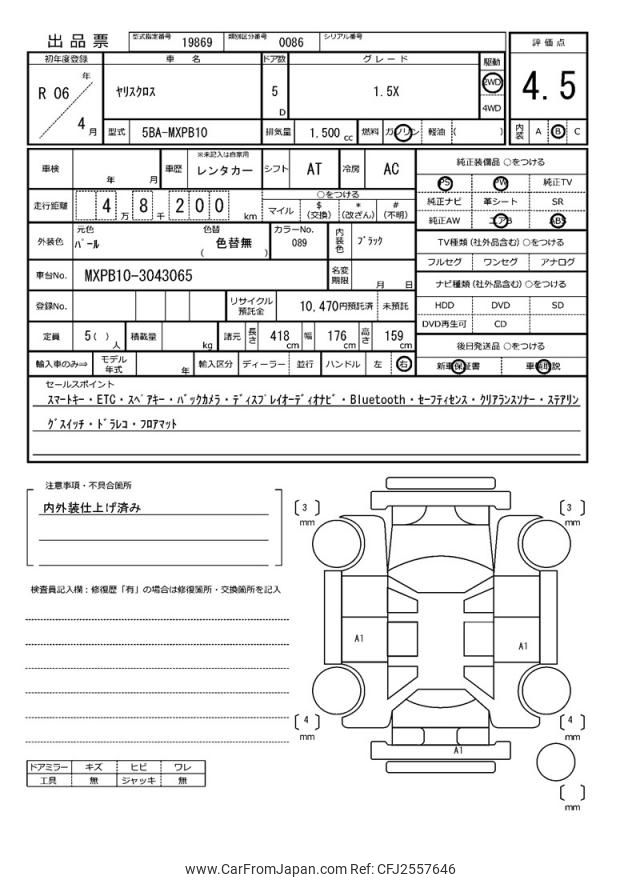 出品票
型式指定番号 19869 類別区分番号 0086 シリアル番号
評価点
4.5
内装 A B C
初年度登録 車名 ドア数 グレード 駆動
R 06 年 4 月
ヤリスクロス 5 D 1.5X
2WD
4WD
型式 5BA-MXPB10 排気量 1.500 cc 燃料 ガソリン 軽油 ( )
車検 年 月 車歴 ※未記入は自家用 レンタカー シフト AT 冷房 AC
走行距離 4 万 8 千 2 0 0 km
○をつける
マイル $ (交換) * (改ざん) # (不明)
外装色 元色 パール 色替 色替無 ( ) カラーNo. 089 内装色 ブラック
車台No. MXPB10-3043065 名変期限 月 日
登録No. リサイクル預託金 10.470円預託済 未預託
定員 5( ) 人 積載量 kg 諸元 長さ 418 cm 幅 176 cm 高さ 159 cm
輸入車のみ⇒ モデル年式 年 輸入区分 ディーラー 並行 ハンドル 左 右
純正装備品 ○をつける
PS PW 純正TV
純正ナビ 革シート SR
純正AW エアB ABS
TV種類(社外品含む)○をつける
フルセグ ワンセグ アナログ
ナビ種類(社外品含む)○をつける
HDD DVD SD
DVD再生可 CD
後日発送品 ○をつける
新車保証書 車輌取説
セールスポイント
スマートキー・ETC・スペアキー・バックカメラ・ディスプレイオーディオナビ・Bluetooth・セーフティセンス・クリアランスソナー・ステアリン
グスイッチ・ドラレコ・フロアマット
注意事項・不具合箇所
内外装仕上げ済み
検査員記入欄:修復歴「有」の場合は修復箇所・交換箇所を記入
3 mm
3 mm
A1
A1
4 mm
4 mm
A1
mm
ドアミラー キズ ヒビ ワレ
工具 無 ジャッキ 無
www.CarFromJapan.com Ref: CFJ2557646